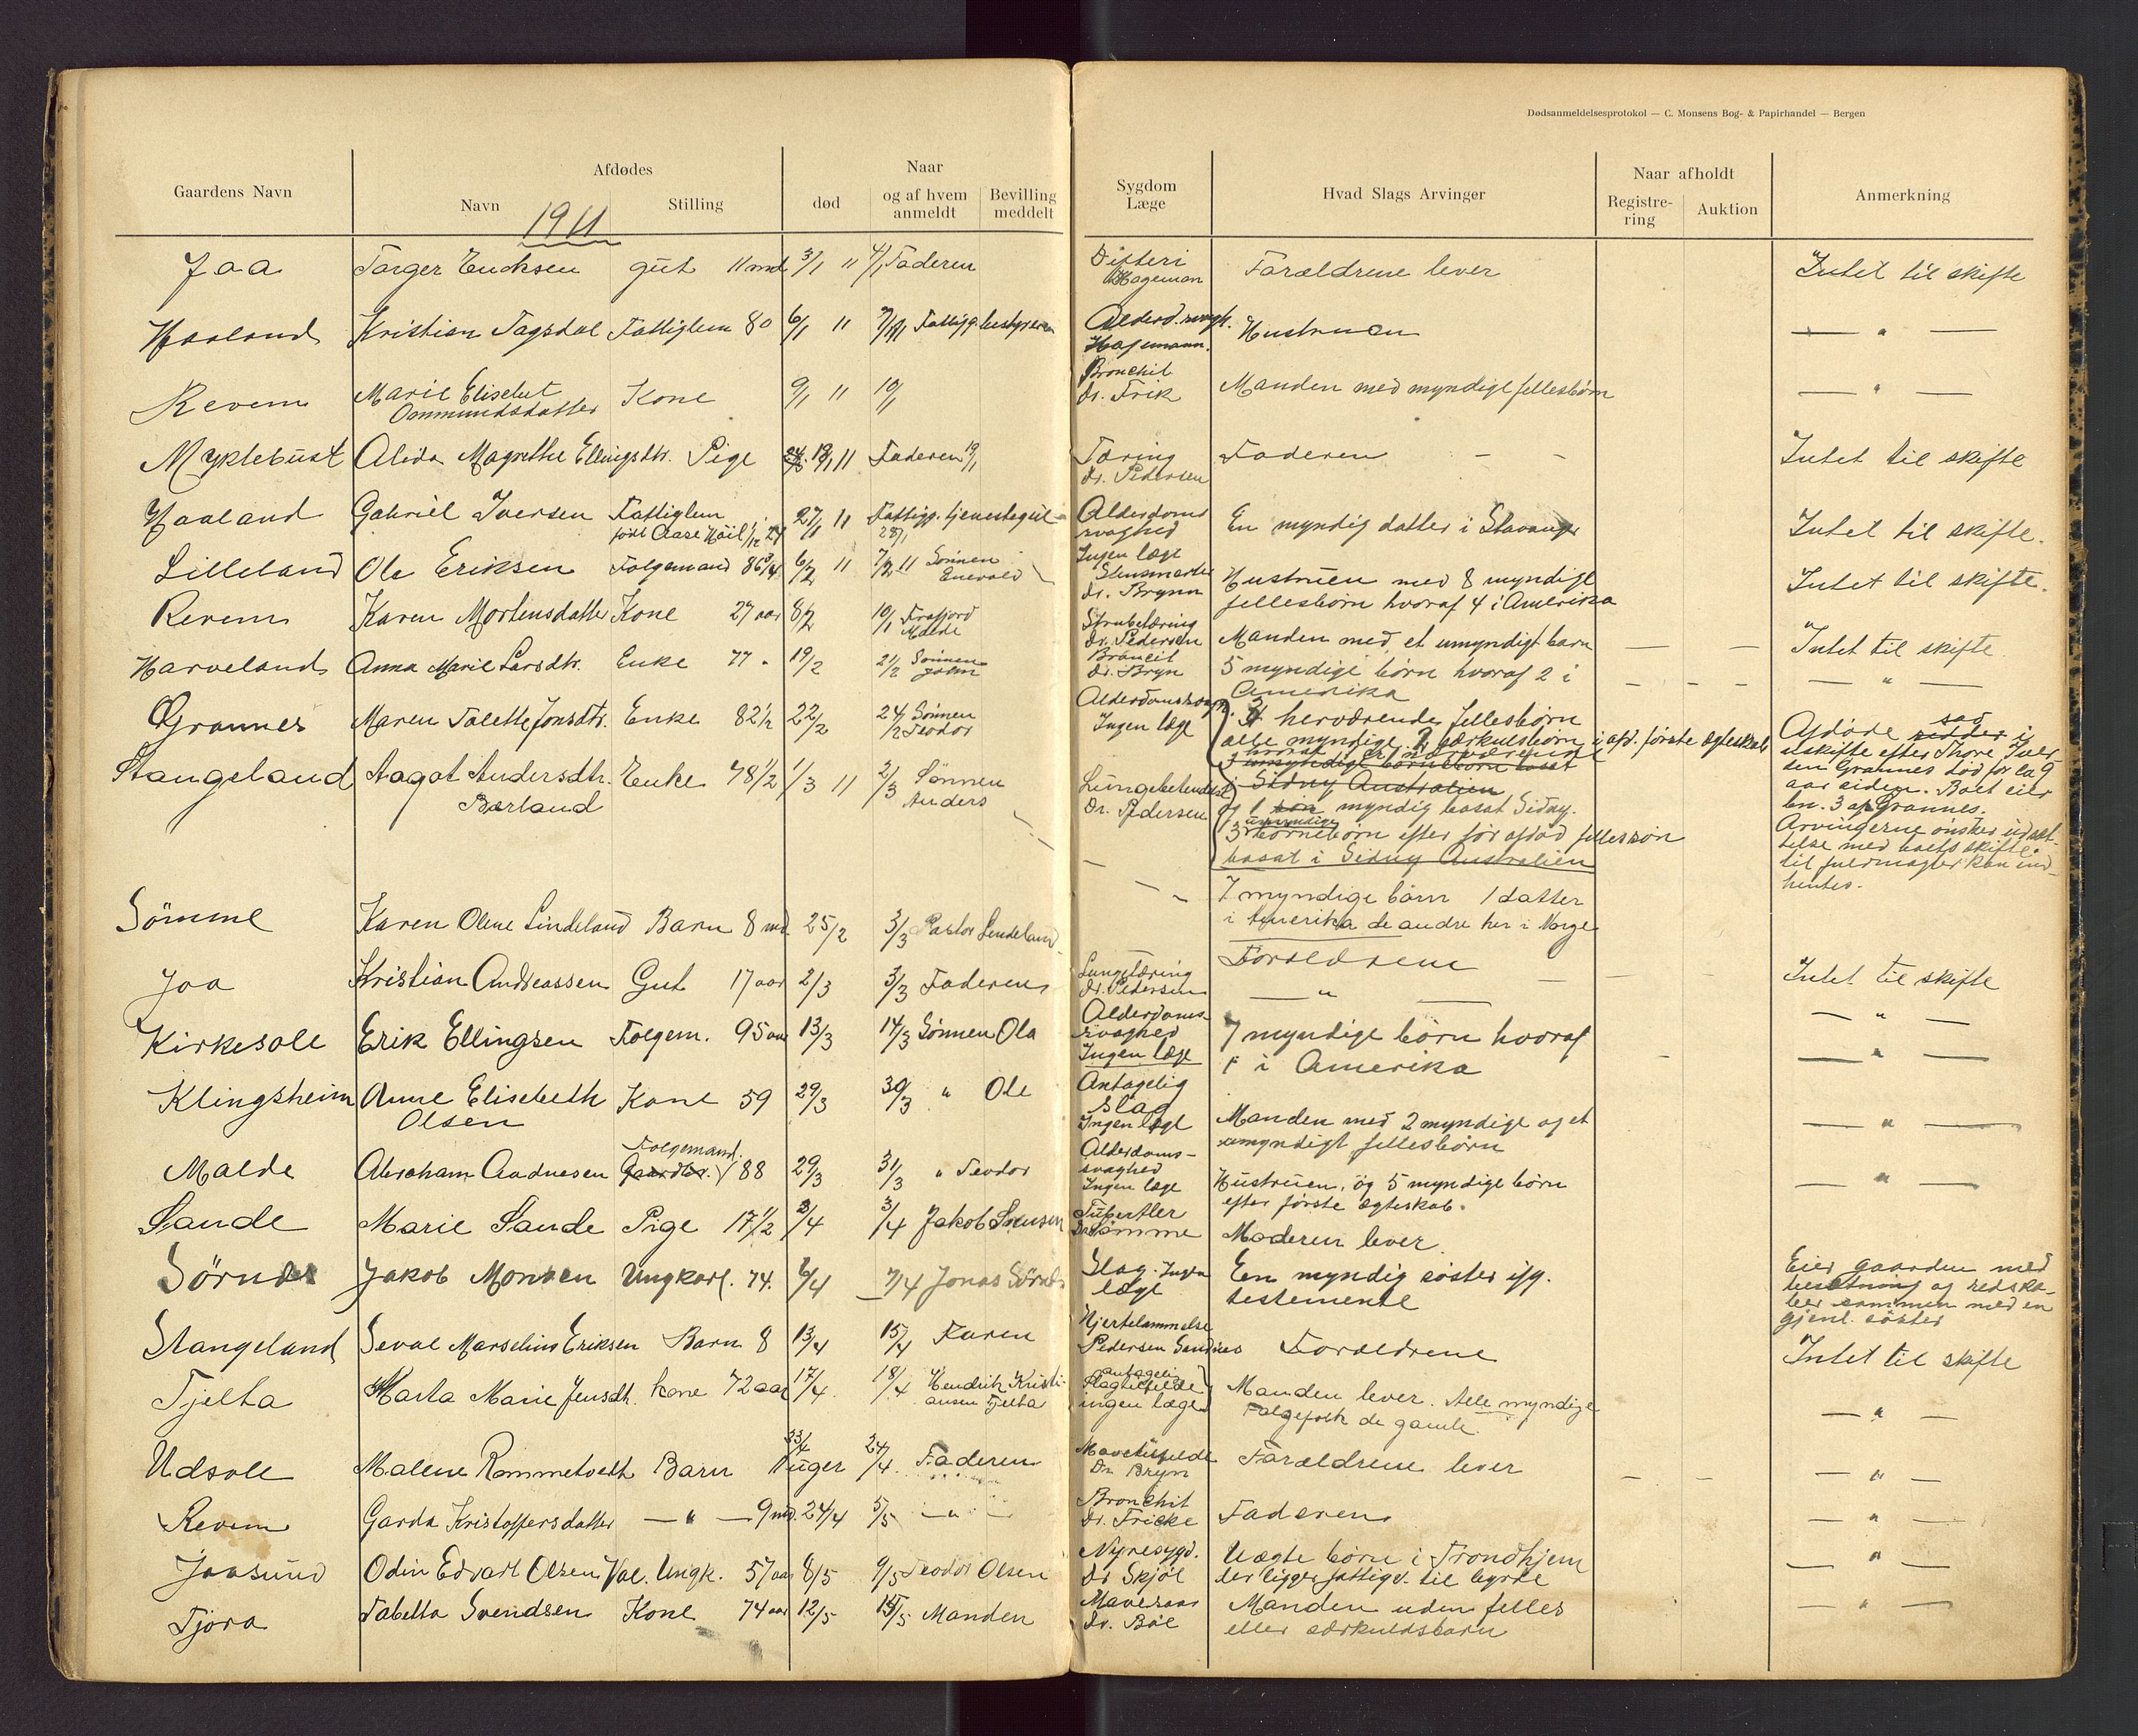 Dødsanmeldelsesprotokol — C. Monsens Bog- & Papirhandel — Bergen
Gaardens Navn
Afdødes
Navn
Stilling
Naar
død
og af hvem anmeldt
Bevilling meddelt
Sygdom
Læge
Hvad Slags Arvinger
Naar afholdt
Registrering
Auktion
Anmerkning
1911
Joa Torger Ericksen gut 11 md 3/1 11 4/1 Faderen Difteri Hageman Forældrene lever Intet til skifte
Haaland Kristian Tagsdal Fattiglem 80 6/1 11 Fattigg. bestyreren Hagemann. Hustruen — " —
Revem Marie Elisebet Ommundsdatter Kone 9/1 11 10/1 Bronchit Dr. Frik Manden med myndige fellesbørn — " —
Myklebust Alida Magrethe Ellingsdtr. Pige 11 Faderen 19/1 Tæring Dr. Pedersen Faderen — — Intet til skifte
Haaland Gabriel Iversen Fattiglem 27/1 11 Fattigg. tjenestegut 28/1 Alderdoms svaghed En myndig datter i Stavanger Intet til skifte.
Lilleland Ole Eriksen Følgemand 86 3/4 6/2 11 7/2 11 Sønnen Enevald Ingen læge Dr. Brynn Hustruen med 8 myndige
fellesbørn hvoraf 4 i Amerika Intet til skifte.
Revem Karen Mortensdatter Kone 27 aar 8/2 10/1 Frafjord Malde Strubetæring Dr. Pedersen Manden med et umyndigt barn — — Intet til skifte
Harveland Anna Marie Larsdtr. Enke 77 " 19/2 21/2 Sønnen John Dr. Bryn 5 myndige børn hvoraf 2 i
Amerika — — — — " —
Grannes Maren Talette Jonsdtr. Enke 82 1/2 22/2 24/2 Sønnen Teodor Ingen læge herværende fellesbørn
alle myndige særkulsbørn i afd. første egteskab
Sidny Australien
og 1 søn myndig bosat Sidny.
3 umyndige børnebørn efter før afdød fellessøn
bosat i Sidny Australien
Afdøde sad i
uskifte efter Thore Iver-
sen Grannes død for ca 9
aar siden. Boet eier
bn. 3 af Grannes.
Arvingerne ønsker udsæt-
telse med boets skifte
til fuldmagter kan ind-
hentes.
Stangeland Aagot Andersdtr. Børland Enke 78 1/2 1/3 11 2/3 Sønnen Anders Lungebetendelse Dr. Pedersen
7 myndige børn 1 datter
i Amerika de andre her i Norge
Sømme Karen Oline Lindeland Barn 8 md. 25/2 3/3 Pastor Lindeland Forældrene
Joa Kristian Andreassen Gut 17 aar 2/3 3/3 Faderen Lungetæring Dr. Pedersen — " — Intet til skifte
Kirkesole Erik Ellingsen Følgem. 95 aar 13/3 14/3 Sønnen Ola Alderdoms- svaghed Ingen læge 7 myndige børn hvoraf
i Amerika — " —
Klingsheim Anne Elisebeth Olsen Kone 59 29/3 30/3 " Ole Antagelig Slag Ingen læge Manden med 2 myndige og et
umyndigt fellesbørn — " —
Malde Abraham Andnesen Følgemand. Gaardbr. 88 29/3 31/3 " Teodor Alderdoms- svaghed Ingen læge Hustruen, og 5 myndige børn
efter første egteskab. — " —
Sande Marie Sande Pige 17 1/2 2/4 3/4 Jakob Svensen Tuberkler Dr. Sømme Moderen lever.
Sørnes Jakob Monsen Ungkarl. 74. 6/4 7/4 Jonas Sørnes Slag. Ingen læge En myndig søster ifg.
testemente
Eier gaarden med
besætning og redska-
ber sammen med en
gjenl. søster
Stangeland Seval Marselius Eriksen Barn 8 13/4 15/4 Faren Hjertelammelse Pedersen Sandnes Forældrene Intet til skifte
Tjelta Marta Marie Jensdtr. kone 72 aar 17/4 18/4 Hendrik Kristiansen Tjelta antagelig slagtilfelde ingen læge Manden lever. Alle myndige
Følgefolk de gamle. — " —
Udsole Malene Rommetvedt Barn uger 24/4. Faderen Mavetilfelde Dr. Bryn Forældrene lever — — — " —
Revem Garda Kristoffersdatter — " — 9 md. 24/4 5/5 — " — Bronchit Dr. Fricke Faderen — " —
Joasund Odin Edvart Olsen Val. Ungk. 57 aar 8/5 9/5 Teodor Olsen Nyresygd. Dr Skjøl Uægte børn i Trondhjem
der ligger fattigv. til byrde — " —
Tjora Tabetta Svendsen Kone 74 aar 12/5 15/5 Manden Mavesaar Dr. Bøe Manden uden felles
eller særkuldsbarn — " —